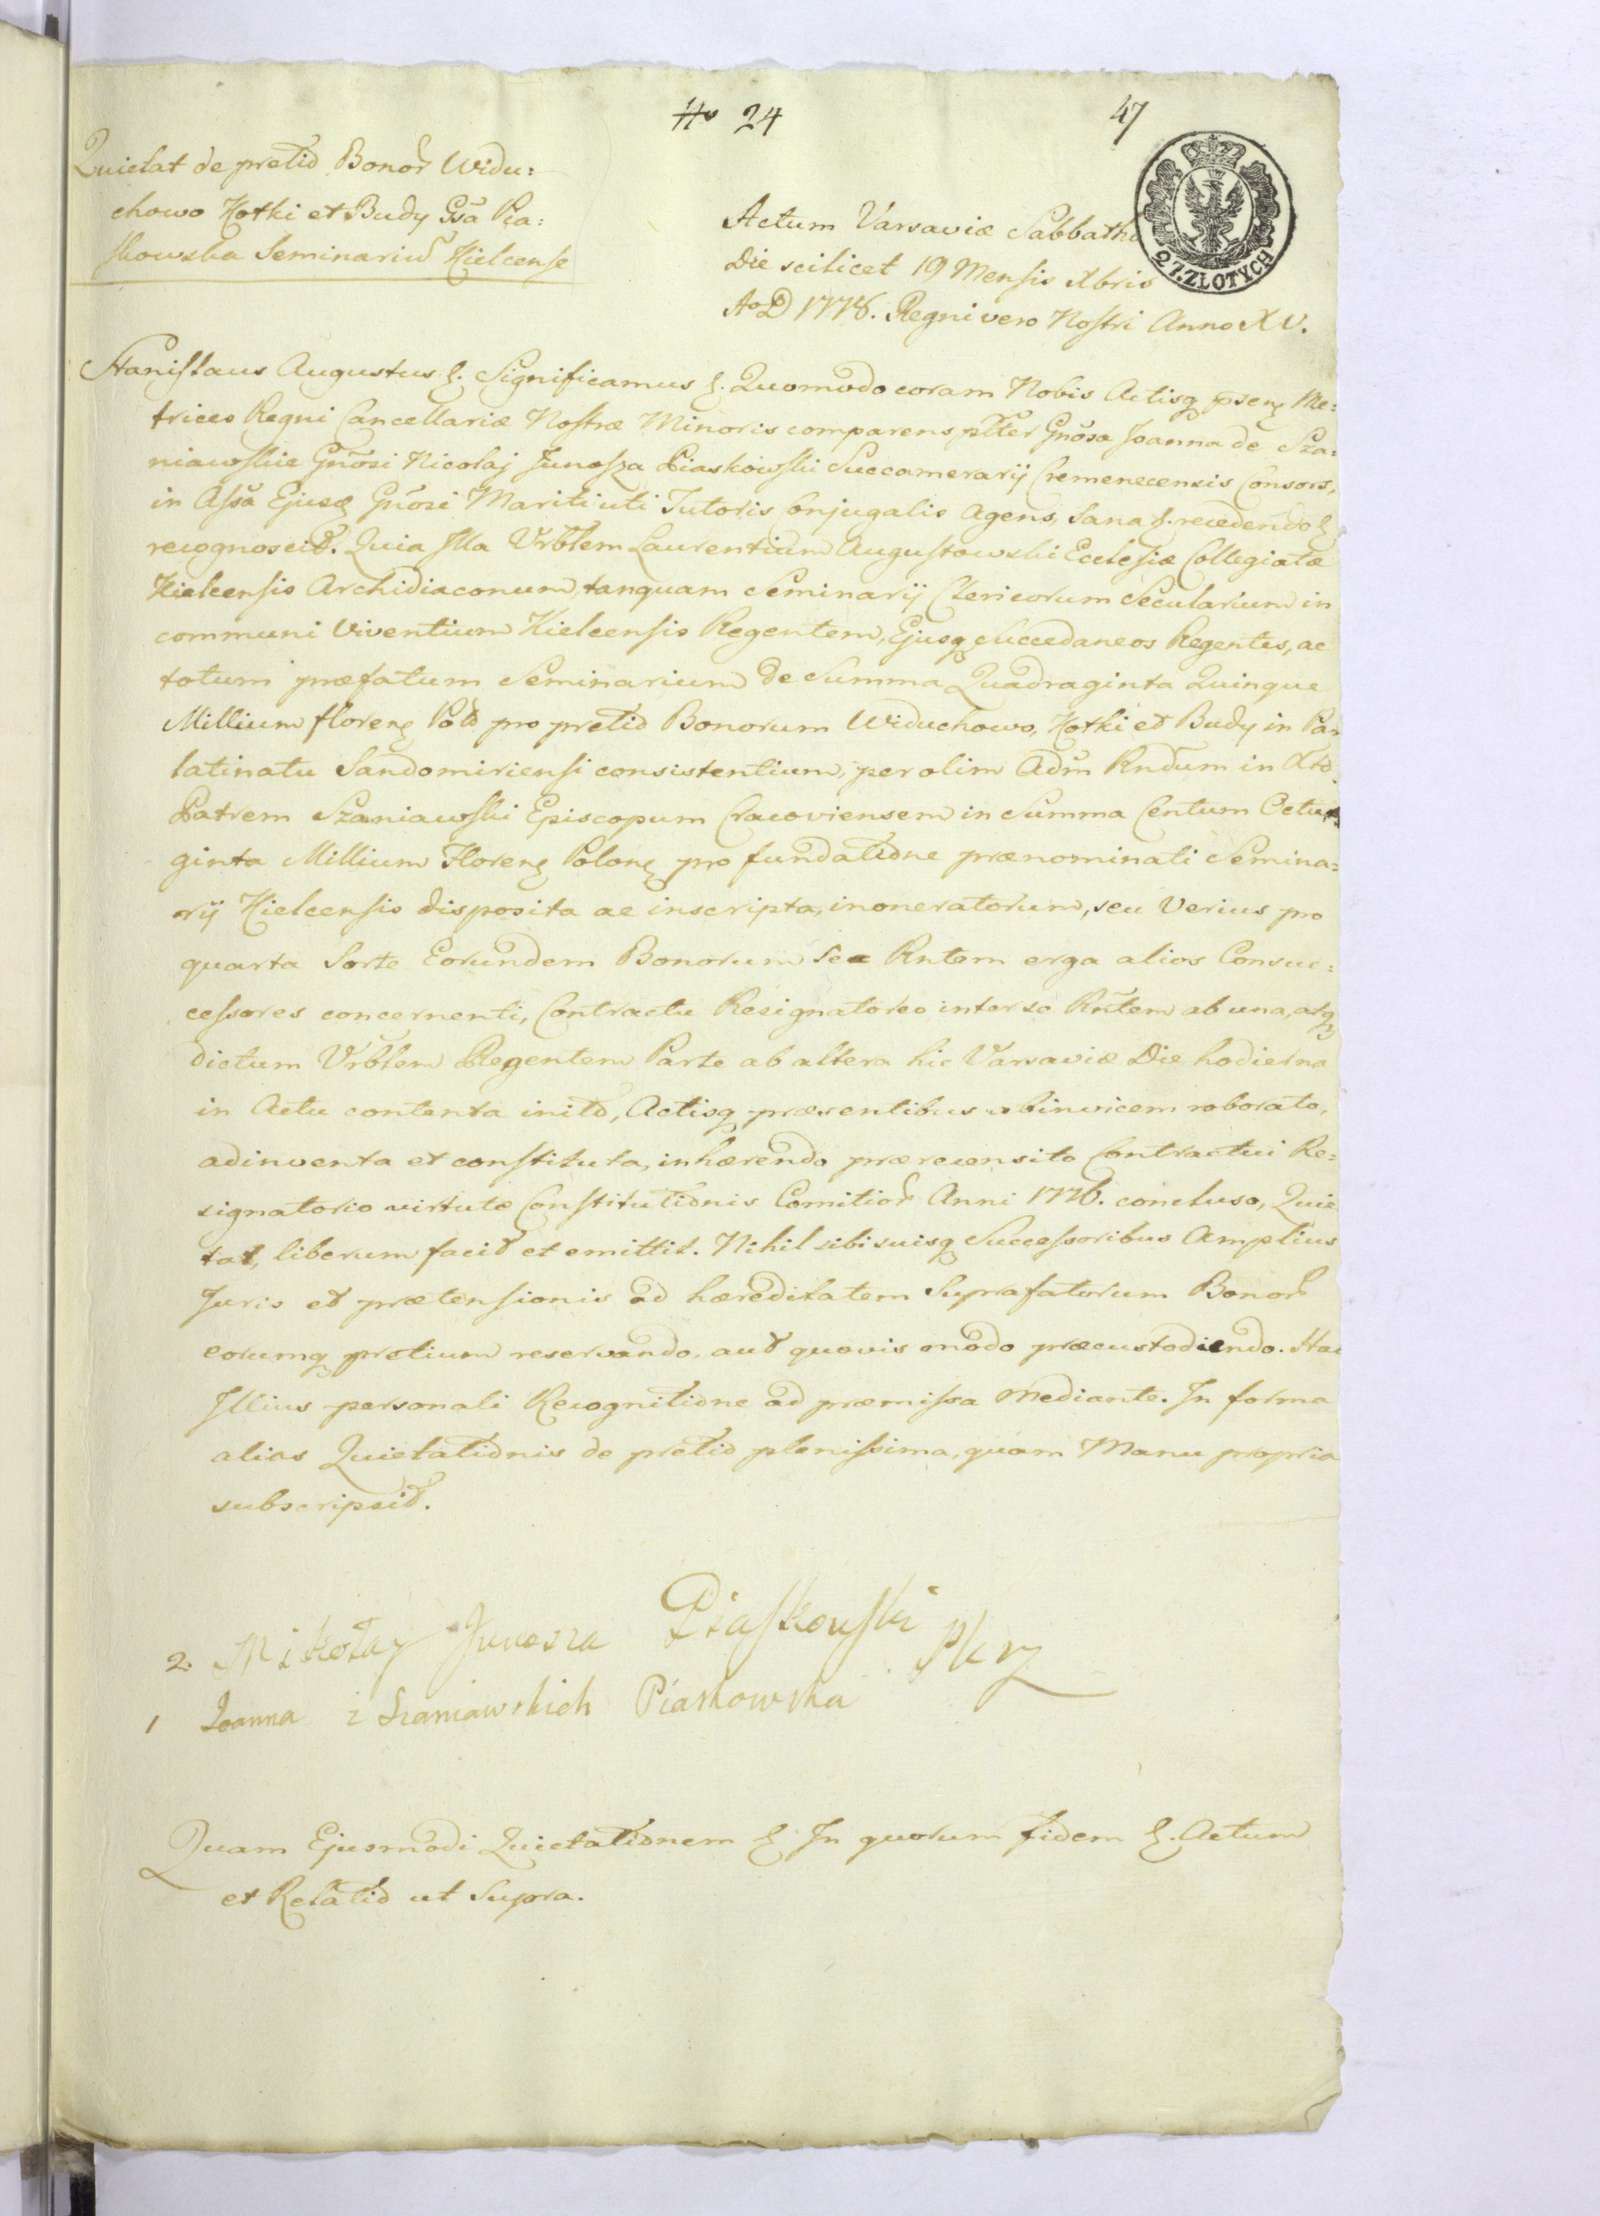 No 24
47
Quietat de pretio Bonor Widu:
chowo Kotki et Budy Gsa Pia:
skowska Seminariu Kielcense
2 7. ZŁOTYCH
Actum Varsaviæ Sabbatho
Die scilicet 19 Mensis Xbris
Ao D 1778. Regni vero Nostri Anno XV.
Stanislaus Augustus &. Significamus &. Quomodo coram Nobis Actisq psen Me:
trices Regni Cancellariæ Nostræ Minoris comparens plter Gnosa Joanna de Sza:
niawskie Gnosi Nicolaj Junosza Piaskowski Succamerarij Cremenecensis Consors,
in Assa Ejusd Gnosi Mariti uti Tutoris Conjugalis Agens, Sana &. recedendo &
recognoscit. Quia Illa Vrblem Laurentium Augustowski Ecclesiæ Collegiatæ
Kielcensis Archidiaconum, tanquam Seminarij Clericorum Secularium in
communi Viventium Kielcensis Regentem, Ejusq Succedaneos Regentes, ac
totum præfatum Seminarium de Summa Quadraginta Quinque
Millium floren Polo pro pretio Bonorum Widuchowo, Kotki et Budy in Pa:
latinatu Sandomiriensi consistentium, per olim Adm Rndum in Xto
Patrem Szaniawski Episcopum Cracoviensem in Summa Centum Octua
ginta Millium Floren Polon pro fundatione prænominati Semina:
rij Kielcensis disposita ac inscripta, inoneratorum, seu Verius pro
quarta Sorte Eorundem Bonorum Se Rntem erga alios Consuc:
cessores concernenti, Contractu Resignatorio inter se Rntem ab una, atq
dictum Vrblem Regentem Parte ab altera hic Varsaviæ Die hodierna
in Actu contenta inito, Actisq præsentibus abinvicem roborato,
adinventa et constituta, inhærendo prærecensito Contractui Re:
signatorio virtute Constitutionis Comitior Anni 1776. concluso, Quie
tat, liberum facit et emittit. Nihil sibi suisq Successoribus Amplius
Juris et prætensionis ad hæreditatem Suprafatorum Bonor
eorumq pretium reservando, aut quovis modo præcustodiendo. Hac
Illius personali Recognitione ad præmissa Mediante. In forma
alias Quietationis de pretio plenissima, quam Manu propria
subscripsit.
2. Mikołay Junosza Piaskowski Pkrz
1 Joanna z Szaniawskich Piaskowska
Quam Ejusmodi Quietationem & In quorum fidem &. Actum
et Relatio ut Supra.